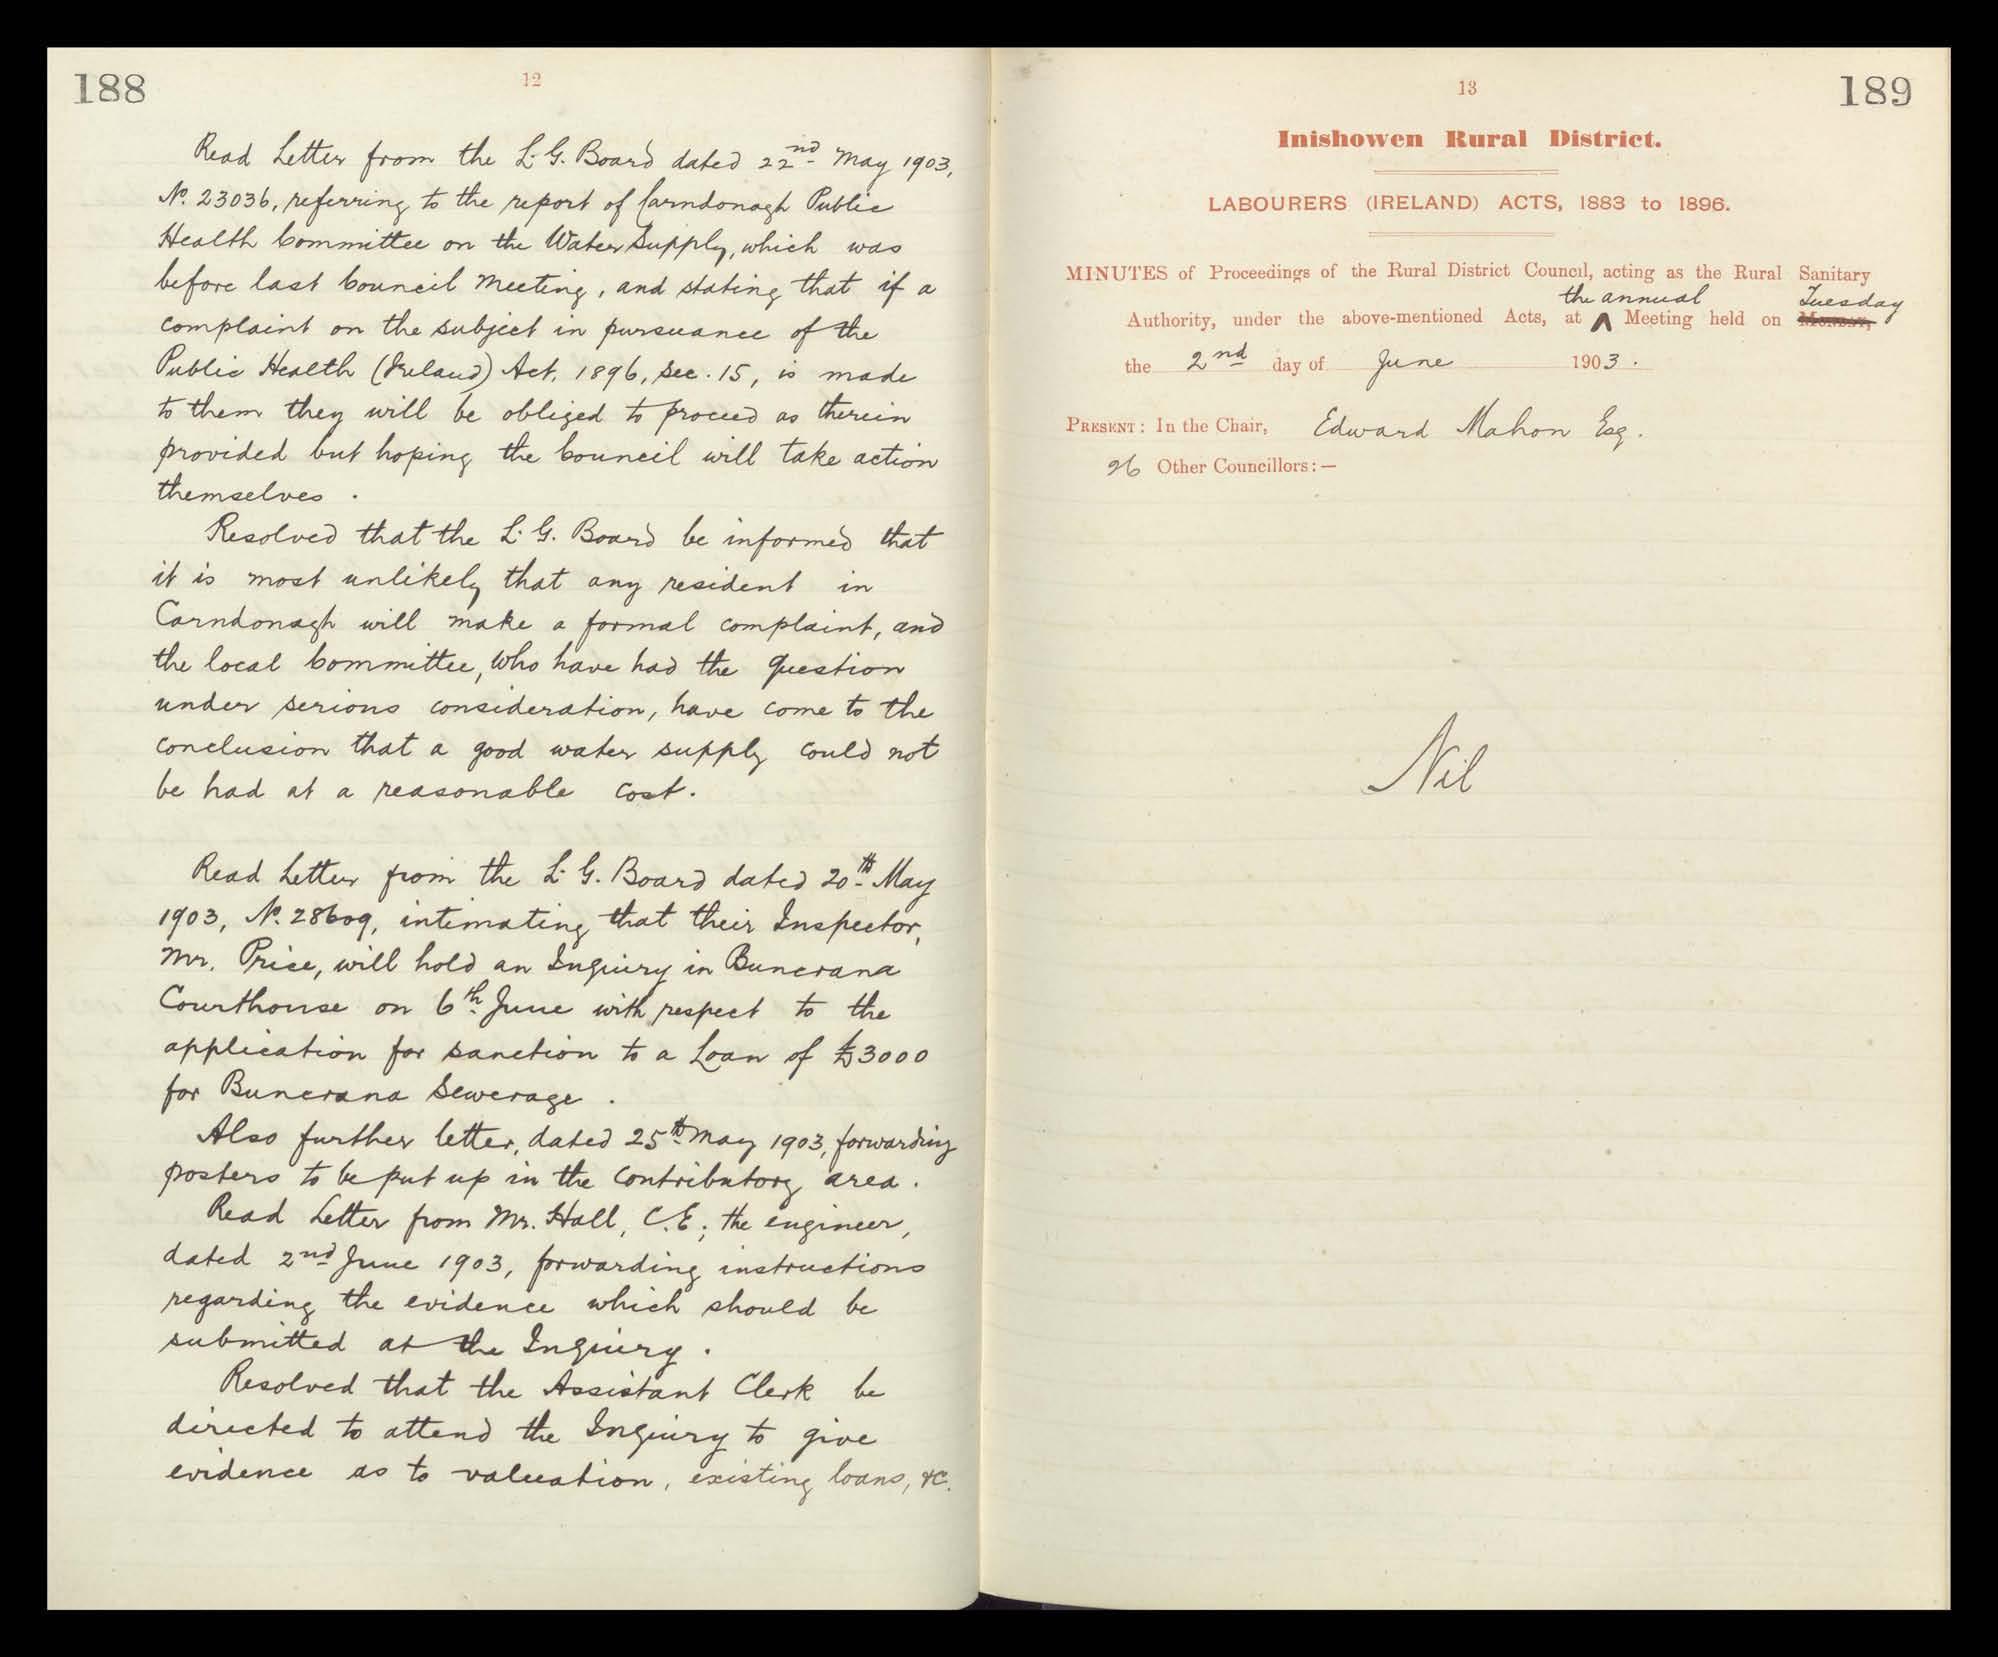 188
12
Read Letter from the L. G. Board dated 22nd May 1903,
No. 23036, referring to the report of Carndonagh Public
Health Committee on the Water Supply, which was
before last Council Meeting, and stating that if a
complaint on the subject in pursuance of the
Public Health (Ireland) Act, 1896, sec. 15, is made
to them they will be obliged to proceed as therein
provided but hoping the Council will take action
themselves.
Resolved that the L. G. Board be informed that
it is most unlikely that any resident in
Carndonagh will make a formal complaint, and
the local Committee, who have had the question
under serious consideration, have come to the
conclusion that a good water supply could not
be had at a reasonable cost.
Read Letter from the L. G. Board dated 20th May
1903, No. 28609, intimating that their Inspector,
Mr. Price, will hold an Inquiry in Buncrana
Courthouse on 6th June with respect to the
application for sanction to a Loan of £3000
for Buncrana Sewerage.
Also further letter, dated 25th May 1903, forwarding
posters to be put up in the contributory area.
Read Letter from Mr. Hall, C.E., the engineer,
dated 2nd June 1903, forwarding instructions
regarding the evidence which should be
submitted at the Inquiry.
Resolved that the Assistant Clerk be
directed to attend the Inquiry to give
evidence as to valuation, existing loans, &c.
13
189
Inishowen Rural District.
LABOURERS (IRELAND) ACTS, 1883 to 1896.
MINUTES of Proceedings of the Rural District Council, acting as the Rural Sanitary
the annual Tuesday
Authority, under the above-mentioned Acts, at ^ Meeting held on Monday,
the 2nd day of June 1903.
PRESENT: In the Chair, Edward Mahon Esq.
26 Other Councillors:—
Nil